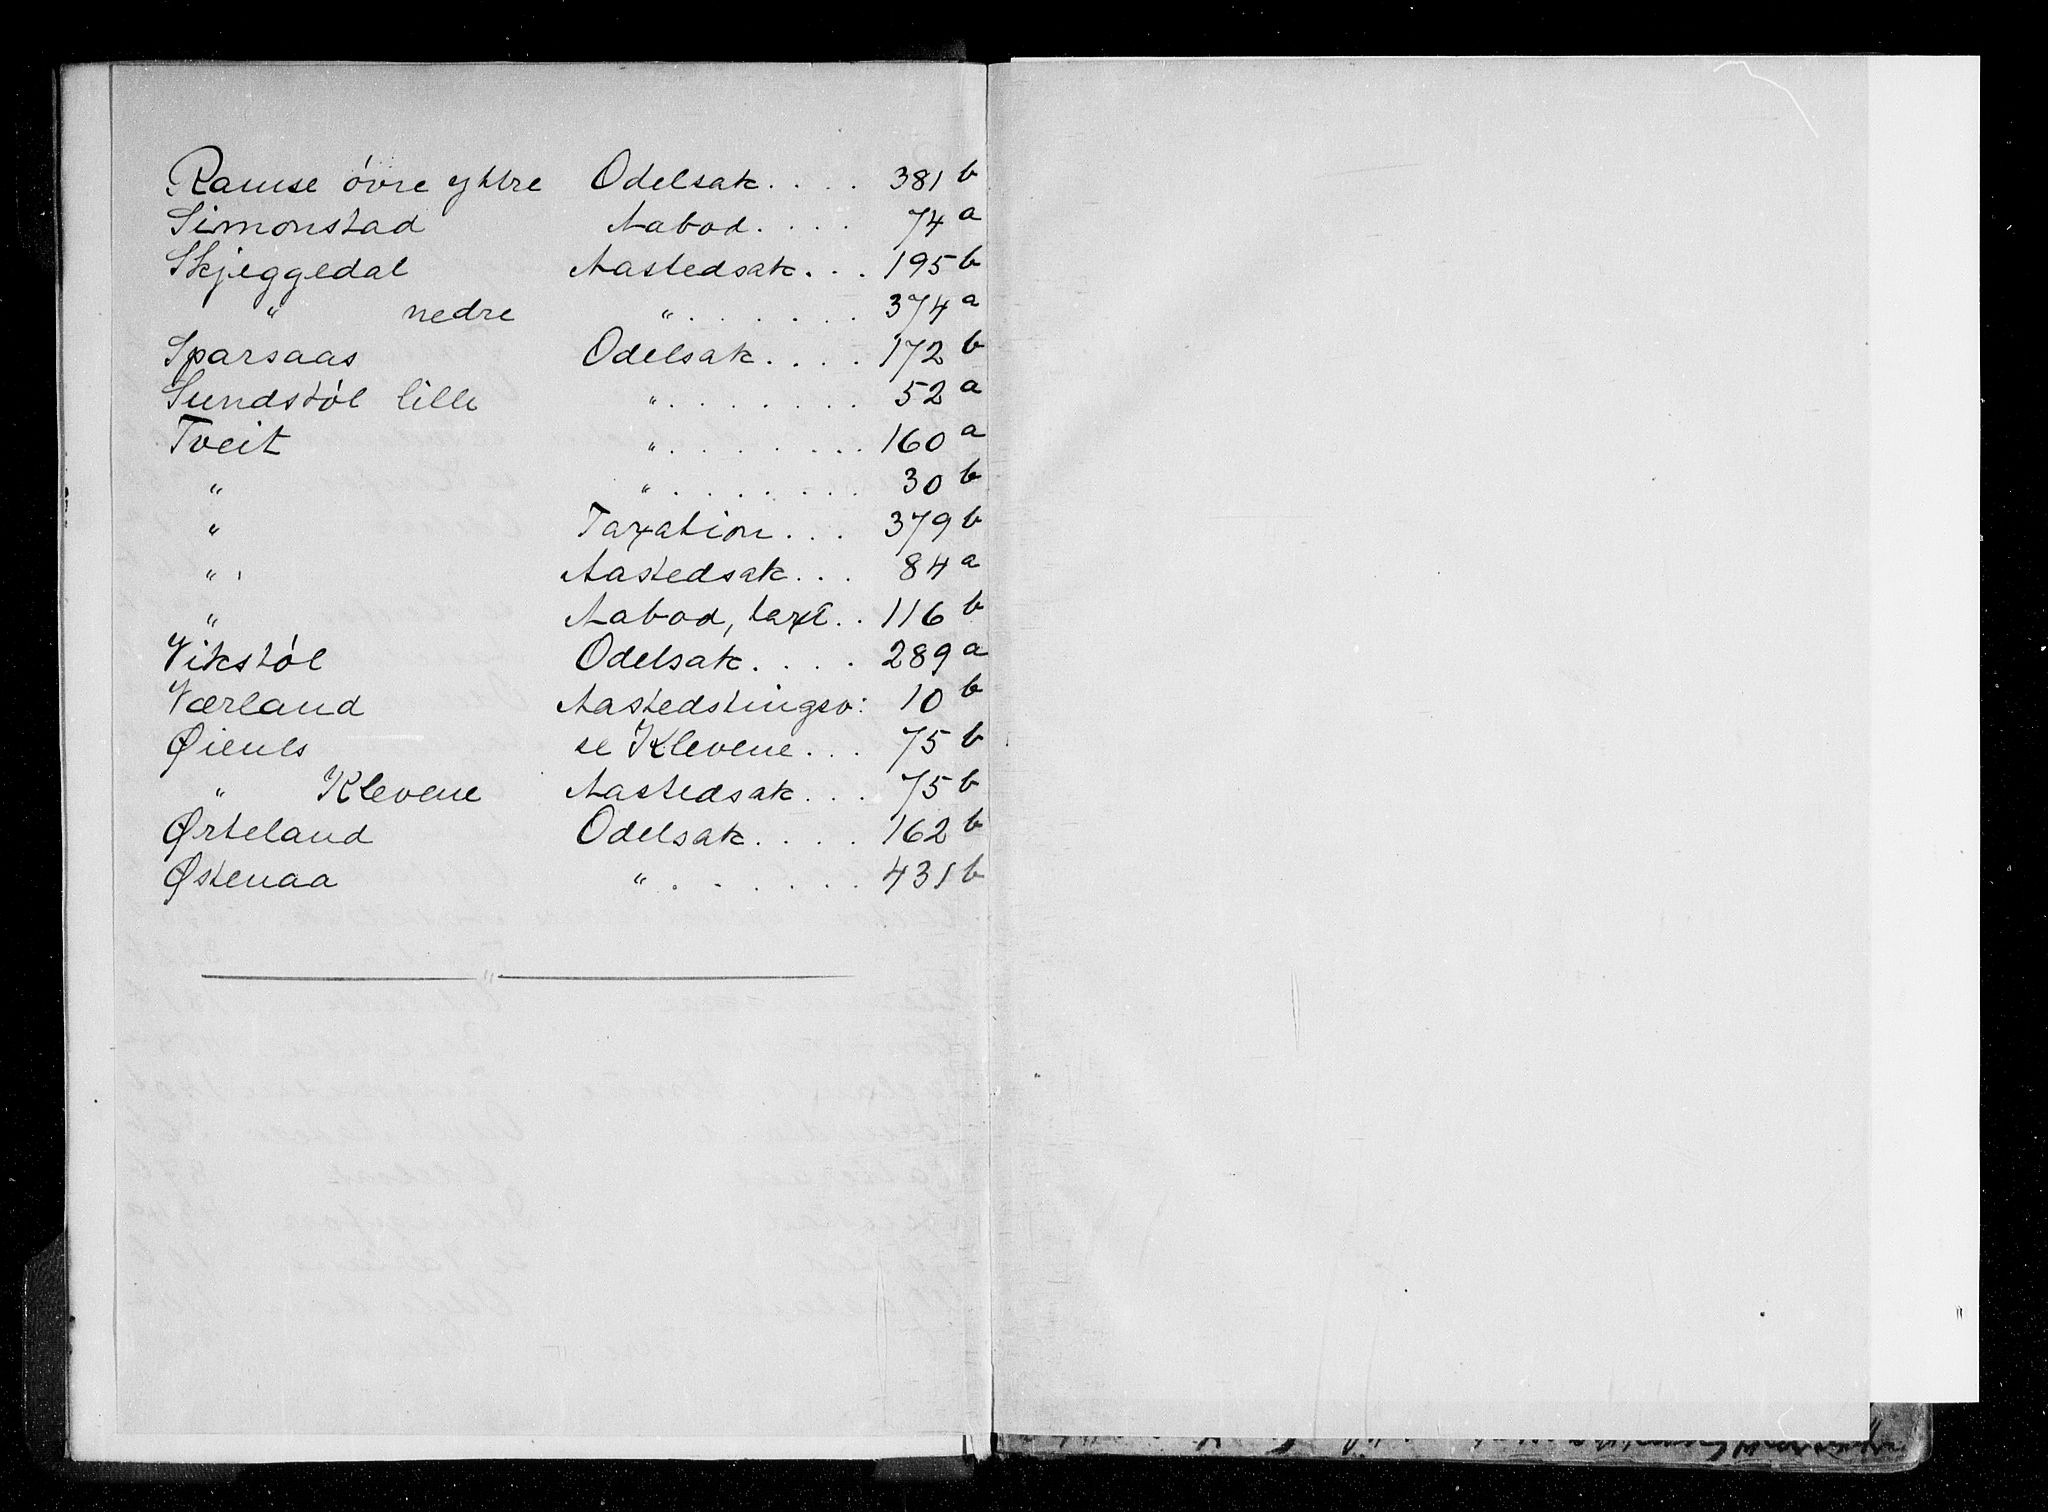 Ramse övre yttre Odelsak. . . . 381 b
Simonstad Aabod. . . . 74 a
Skjeggedal Aastedsak. . . 195 b
" nedre " . . . . . . . 374 a
Sparsaas Odelsak. . . . 172 b
Sundstöl lille " . . . . . . . 52 a
Tveit " . . . . . . . . 160 a
" " . . . . . . . . 30 b
" Taxation. . . 379 b
" Aastedsak. . . 84 a
" Aabod, taxt. . 116 b
Vikstöl Odelsak. . . . 289 a
Værland Aastedstingsv: 10 b
Øienes se Klevene. . . 75 b
" Klevene Aastedsak. . . 75 b
Ørteland Odelsak. . . . 162 b
Østenaa " . . . . . . 431 b